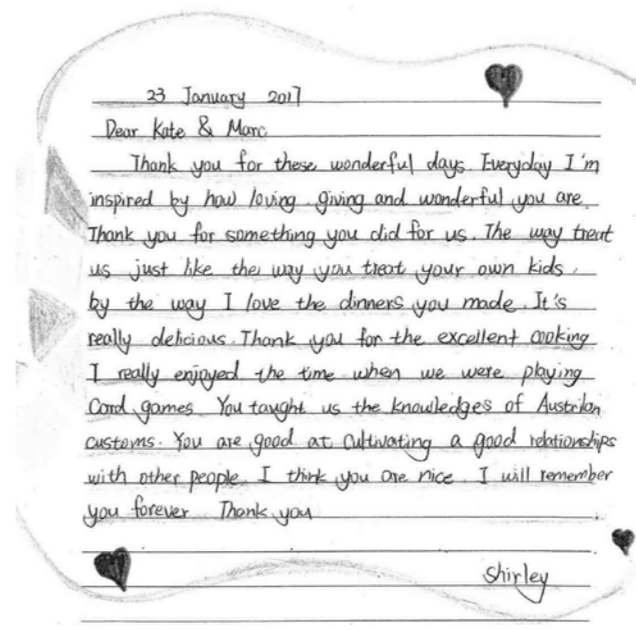 23 January 2017
Dear Kate & Marc
Thank you for these wonderful days. Everyday I'm
inspired by how loving, giving and wonderful you are.
Thank you for something you did for us. The way treat
us just like the way you treat your own kids,
by the way I love the dinners you made. It's
really delicious. Thank you for the excellent cooking
I really enjoyed the time when we were playing
Card games. You taught us the knowledges of Austrilan
customs. You are good at cultivating a good relationships
with other people. I think you are nice. I will remember
you forever Thank you
Shirley